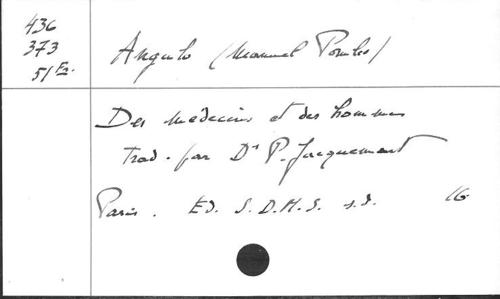 436
373
51 Fz.
Angulo (Manuel Pombo)
Des médecins et des hommes
Trad. par Dr P. Jacquemart
Paris. Ed. S.D.M.S. s.d. 16